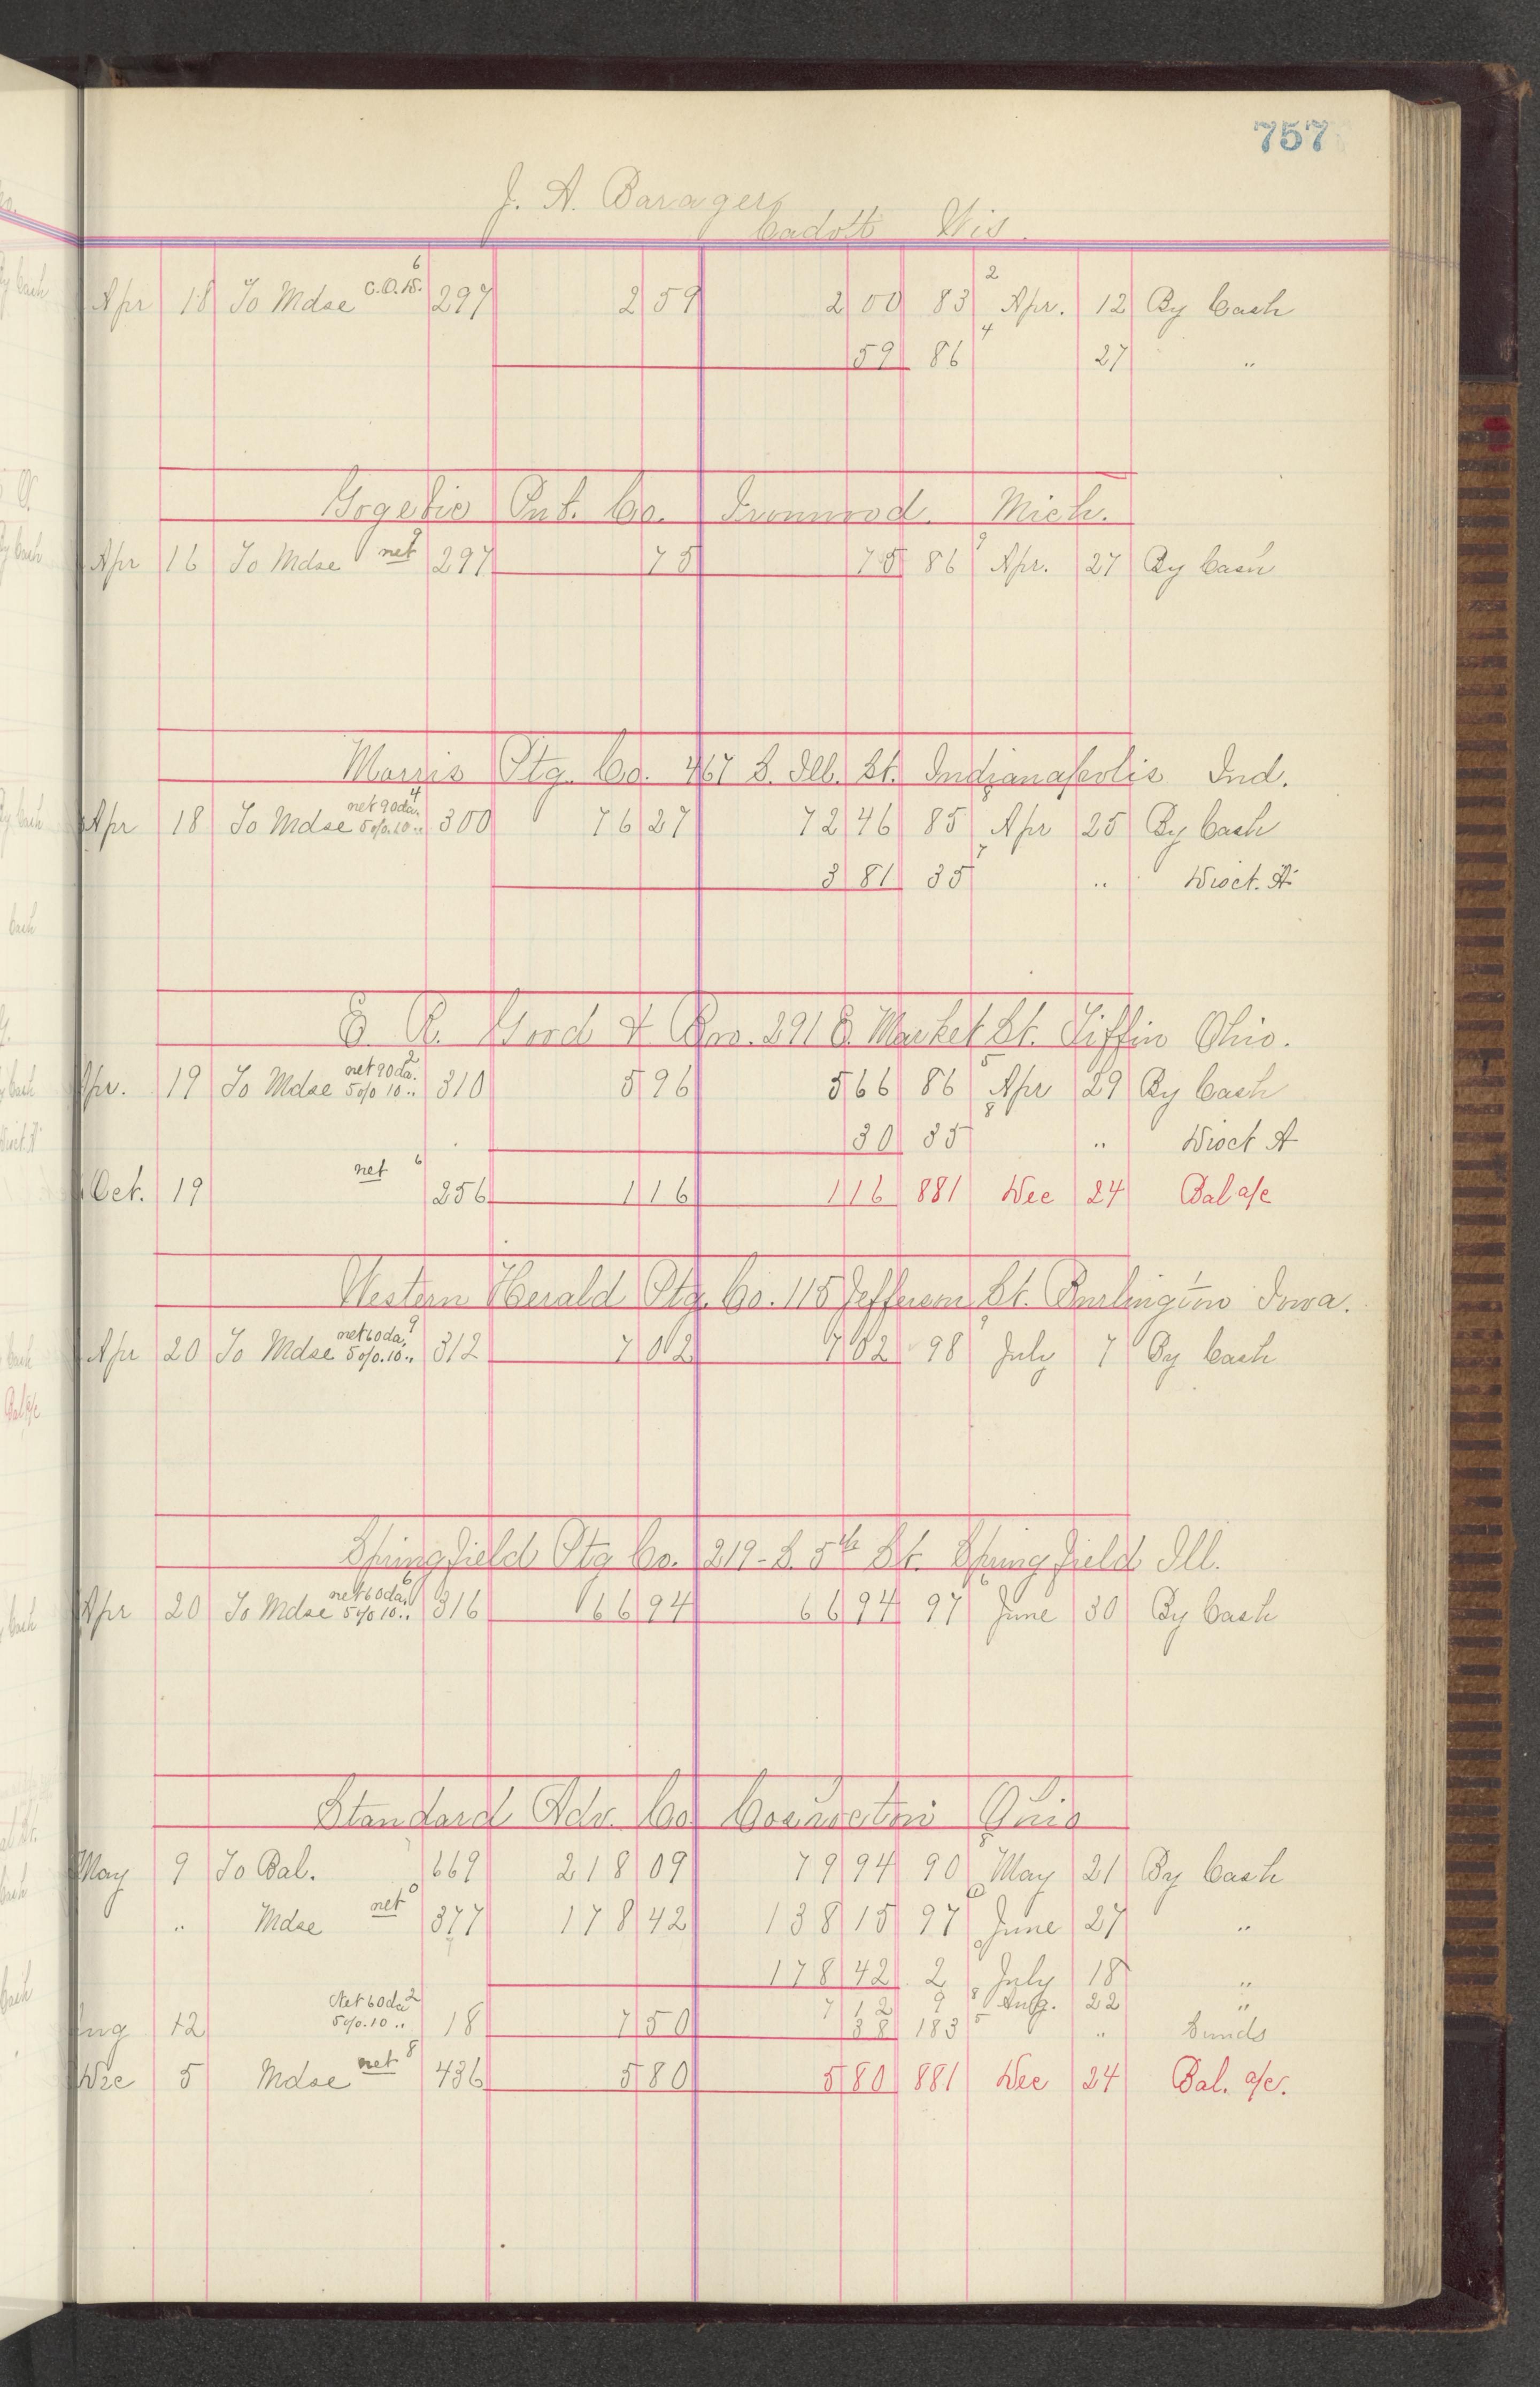 757
J. A. Barager
Cadott Wis.
Apr 18 To Mdse C.O.D. 6 297 2 59 2 00 83 2 Apr. 12 By Cash
59 86 4 27 "
Gogebic Pub. Co. Ironwood. Mich.
Apr 16 To Mdse net 297 75 75 86 9 Apr. 27 By Cash
Morris Ptg. Co. 467 S. Ill. St. Indianapolis Ind.
Apr 18 To Mdse net 90 da. 5% 10 " 4 300 76 27 72 46 85 Apr 25 By Cash
3 81 35 7 " Disct. A
E. R. Good & Bro. 291 E. Market St. Tiffin Ohio.
Apr. 19 To Mdse net 90 da. 5% 10 " 2 310 5 96 5 66 86 5 Apr 29 By Cash
30 35 8 " Disct A
Oct. 19 net 6 256 1 16 1 16 881 Dec 24 Bal a/c
Western Herald Ptg. Co. 115 Jefferson St. Burlington Iowa.
Apr 20 To Mdse net 60 da. 5% 10 " 9 312 7 02 7 02 98 July 7 By Cash
Springfield Ptg Co. 219 - S. 5th St. Springfield Ill.
Apr 20 To Mdse net 60 da. 5% 10 " 6 316 66 94 66 94 97 6 June 30 By Cash
Standard Adv. Co. Coshocton Ohio
May 9 To Bal. 669 218 09 79 94 90 8 May 21 By Cash
" Mdse net 0 377 178 42 138 15 97 June 27 "
178 42 2 July 18 "
7 12 9 8 Aug. 22 "
Aug 12 Net 60 da 5% 10 " 2 18 7 50 38 183 5 " Sunds
Dec 5 Mdse net 8 436 5 80 5 80 881 Dec 24 Bal. a/c.